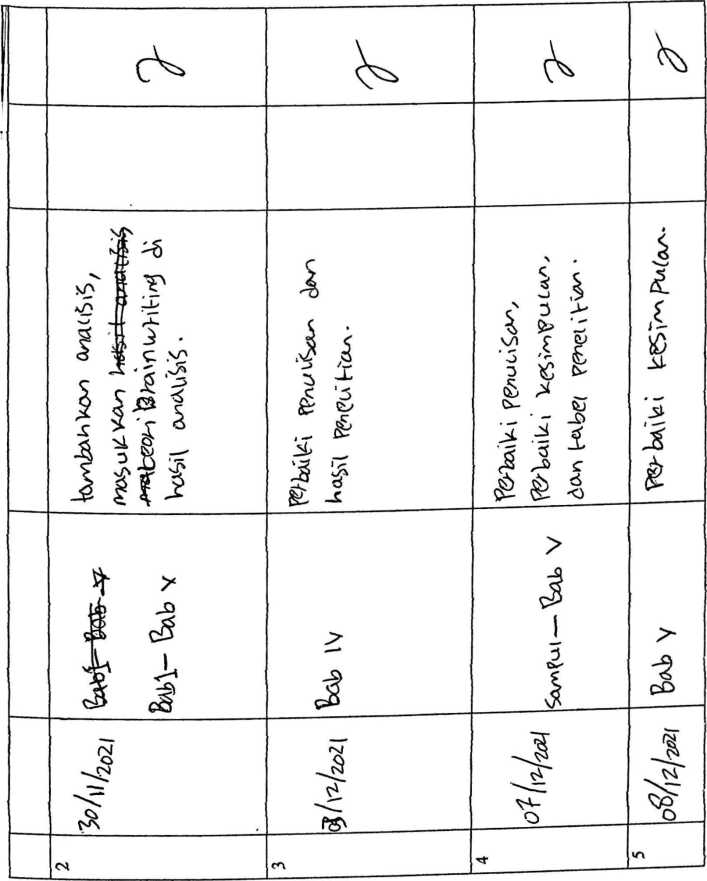 2
30/11/2021
Bab 1 - Bab V
Bab 1 - Bab V
tambahkan analisis,
masukkan hasil analisis
teori Brainwriting di
hasil analisis.
3
03/12/2021
Bab IV
Perbaiki Penulisan dan
hasil Penelitian.
4
07/12/2021
Sampul - Bab V
Perbaiki Penulisan,
Perbaiki Kesimpulan,
dan tabel Penelitian.
5
08/12/2021
Bab V
Perbaiki Kesimpulan.